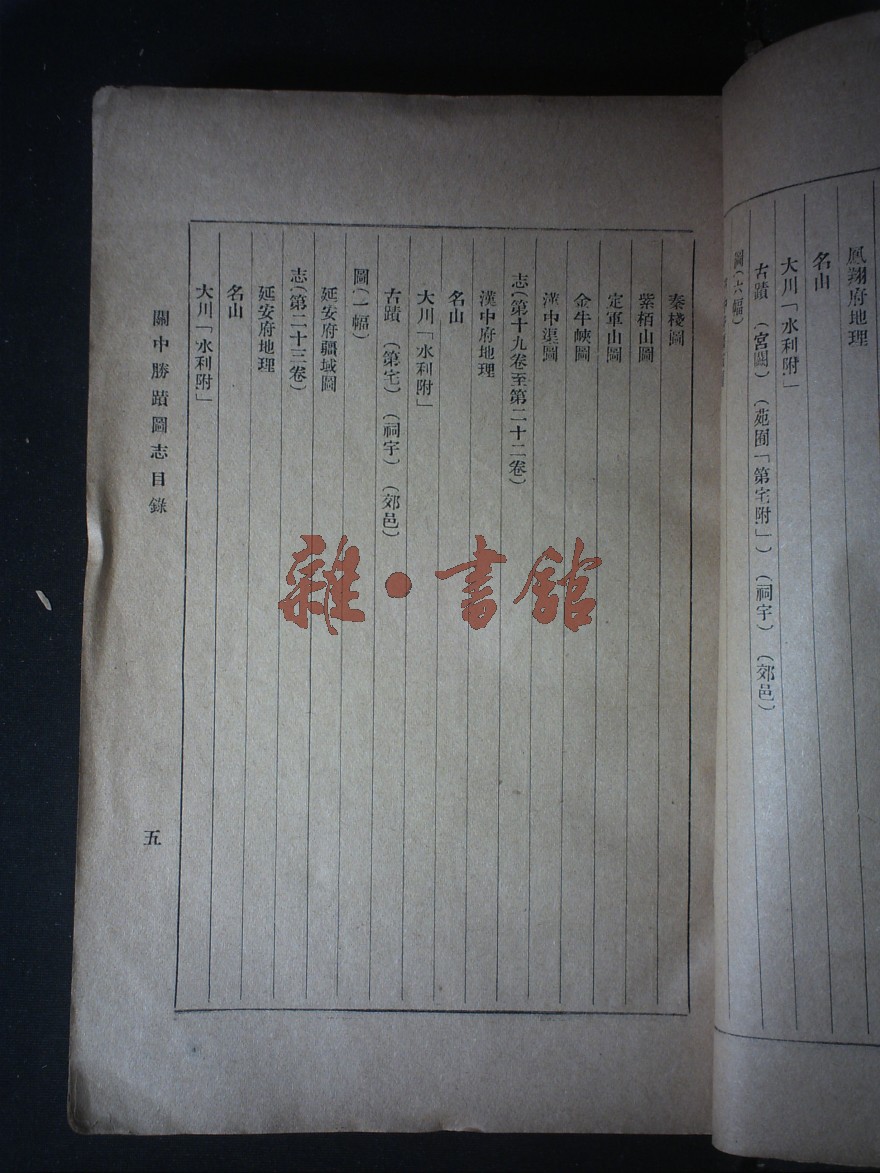 鳳翔府地理
名山
大川「水利附」
古蹟 (宮闕) (苑囿「第宅附」) (祠宇) (郊邑)
圖(六幅)
秦棧圖
紫栢山圖
定軍山圖
金牛峽圖
漢中渠圖
志(第十九卷至第二十二卷)
漢中府地理
名山
大川「水利附」
古蹟 (第宅) (祠宇) (郊邑)
圖(一幅)
延安府疆域圖
志(第二十三卷)
延安府地理
名山
大川「水利附」
關中勝蹟圖志目錄
五
雜·書館